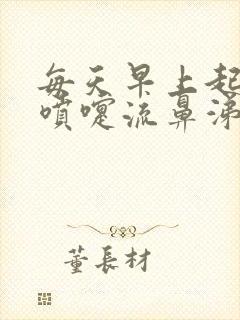 每天早上起
喷嚏流鼻涕
董長材